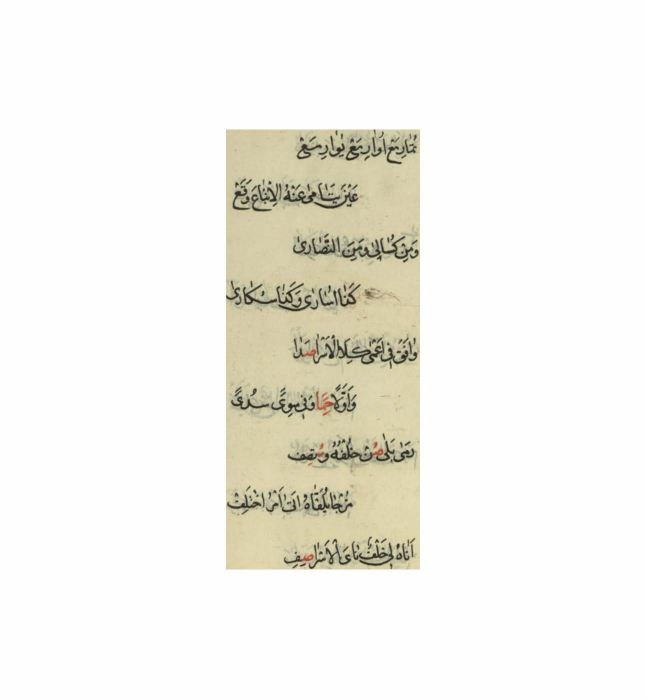 تمار مع اوار مع يوار مع
عين يتامى عنه الاتباع وقع
ومن كسالى ومن النصارى
كذا اسارى وكذا سكارى
وافق في اعمى كلا الاسرا صدا
واولا حما وفي سوى سدى
رمى بلى صن خلفه ومتصف
مزجا يلقاه اتى امر اختلف
اناه لي خلف ناى الاسرا صف